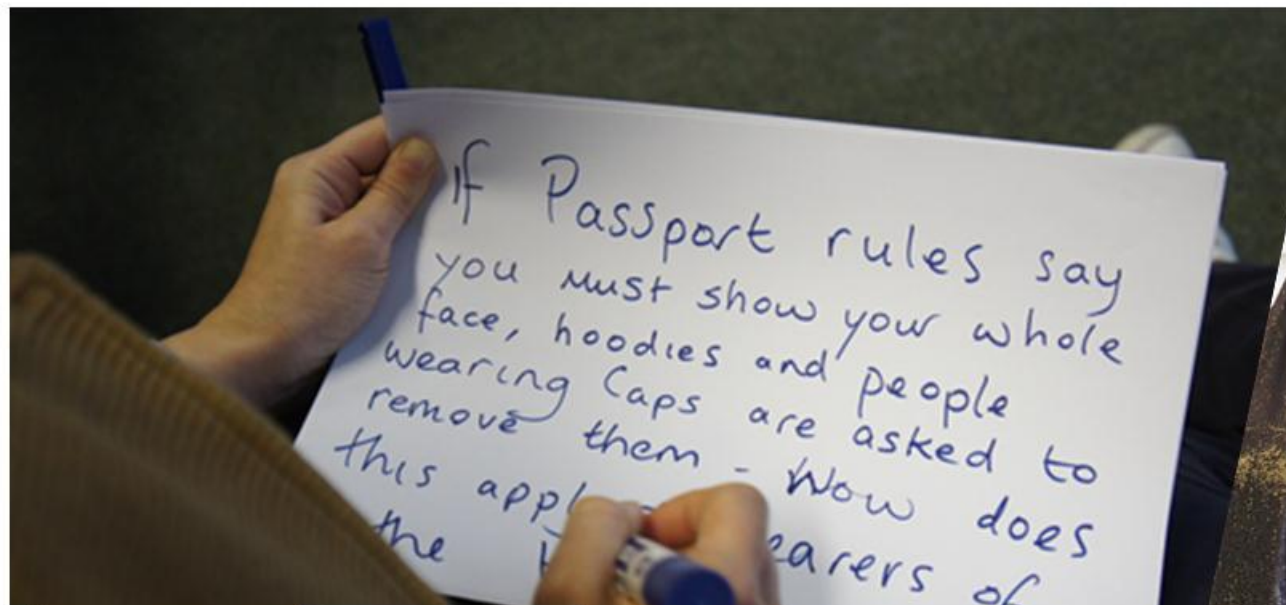 If Passport rules say
you must show your whole
face, hoodies and people
wearing Caps are asked to
remove them - Wow does
this of
the